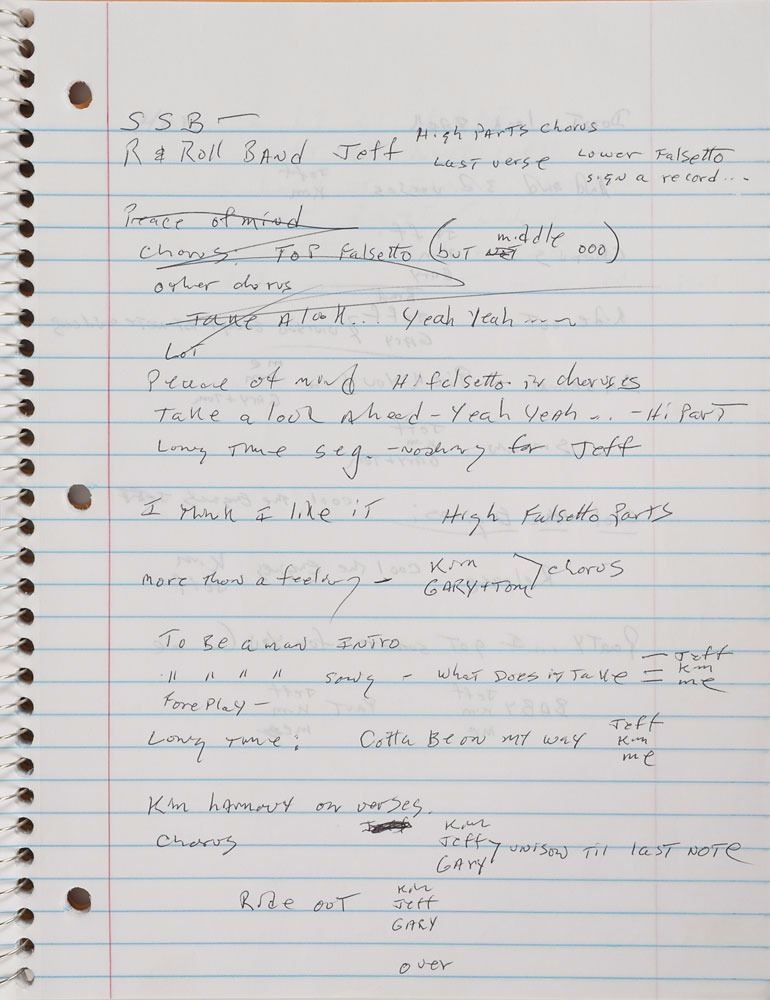 SSB —
R & Roll BAND Jeff High PARTS Chorus
LAST verse Lower Falsetto
sign a record...
Peace of mind
Chorus: TOP Falsetto (but middle ooo)
other chorus
Take A look... Yeah Yeah ~~~
Lot
Peace of mind Hi falsetto in choruses
Take a look Ahead - Yeah Yeah ... - Hi PART
Long Time seg. - nothing for Jeff
I think I like it High Falsetto Parts
more than a feeling - Kim
GARY + Tom } chorus
To Be a man INTRO
" " " " song - What Does it Take — Jeff
— Kim
— me
Foreplay -
Long Time: Gotta Be on MY way Jeff
Kim
me
Kim harmony on verses.
Chorus Kim
Jeff
GARY } unison til last NOTE
Ride out Kim
Jeff
GARY
over